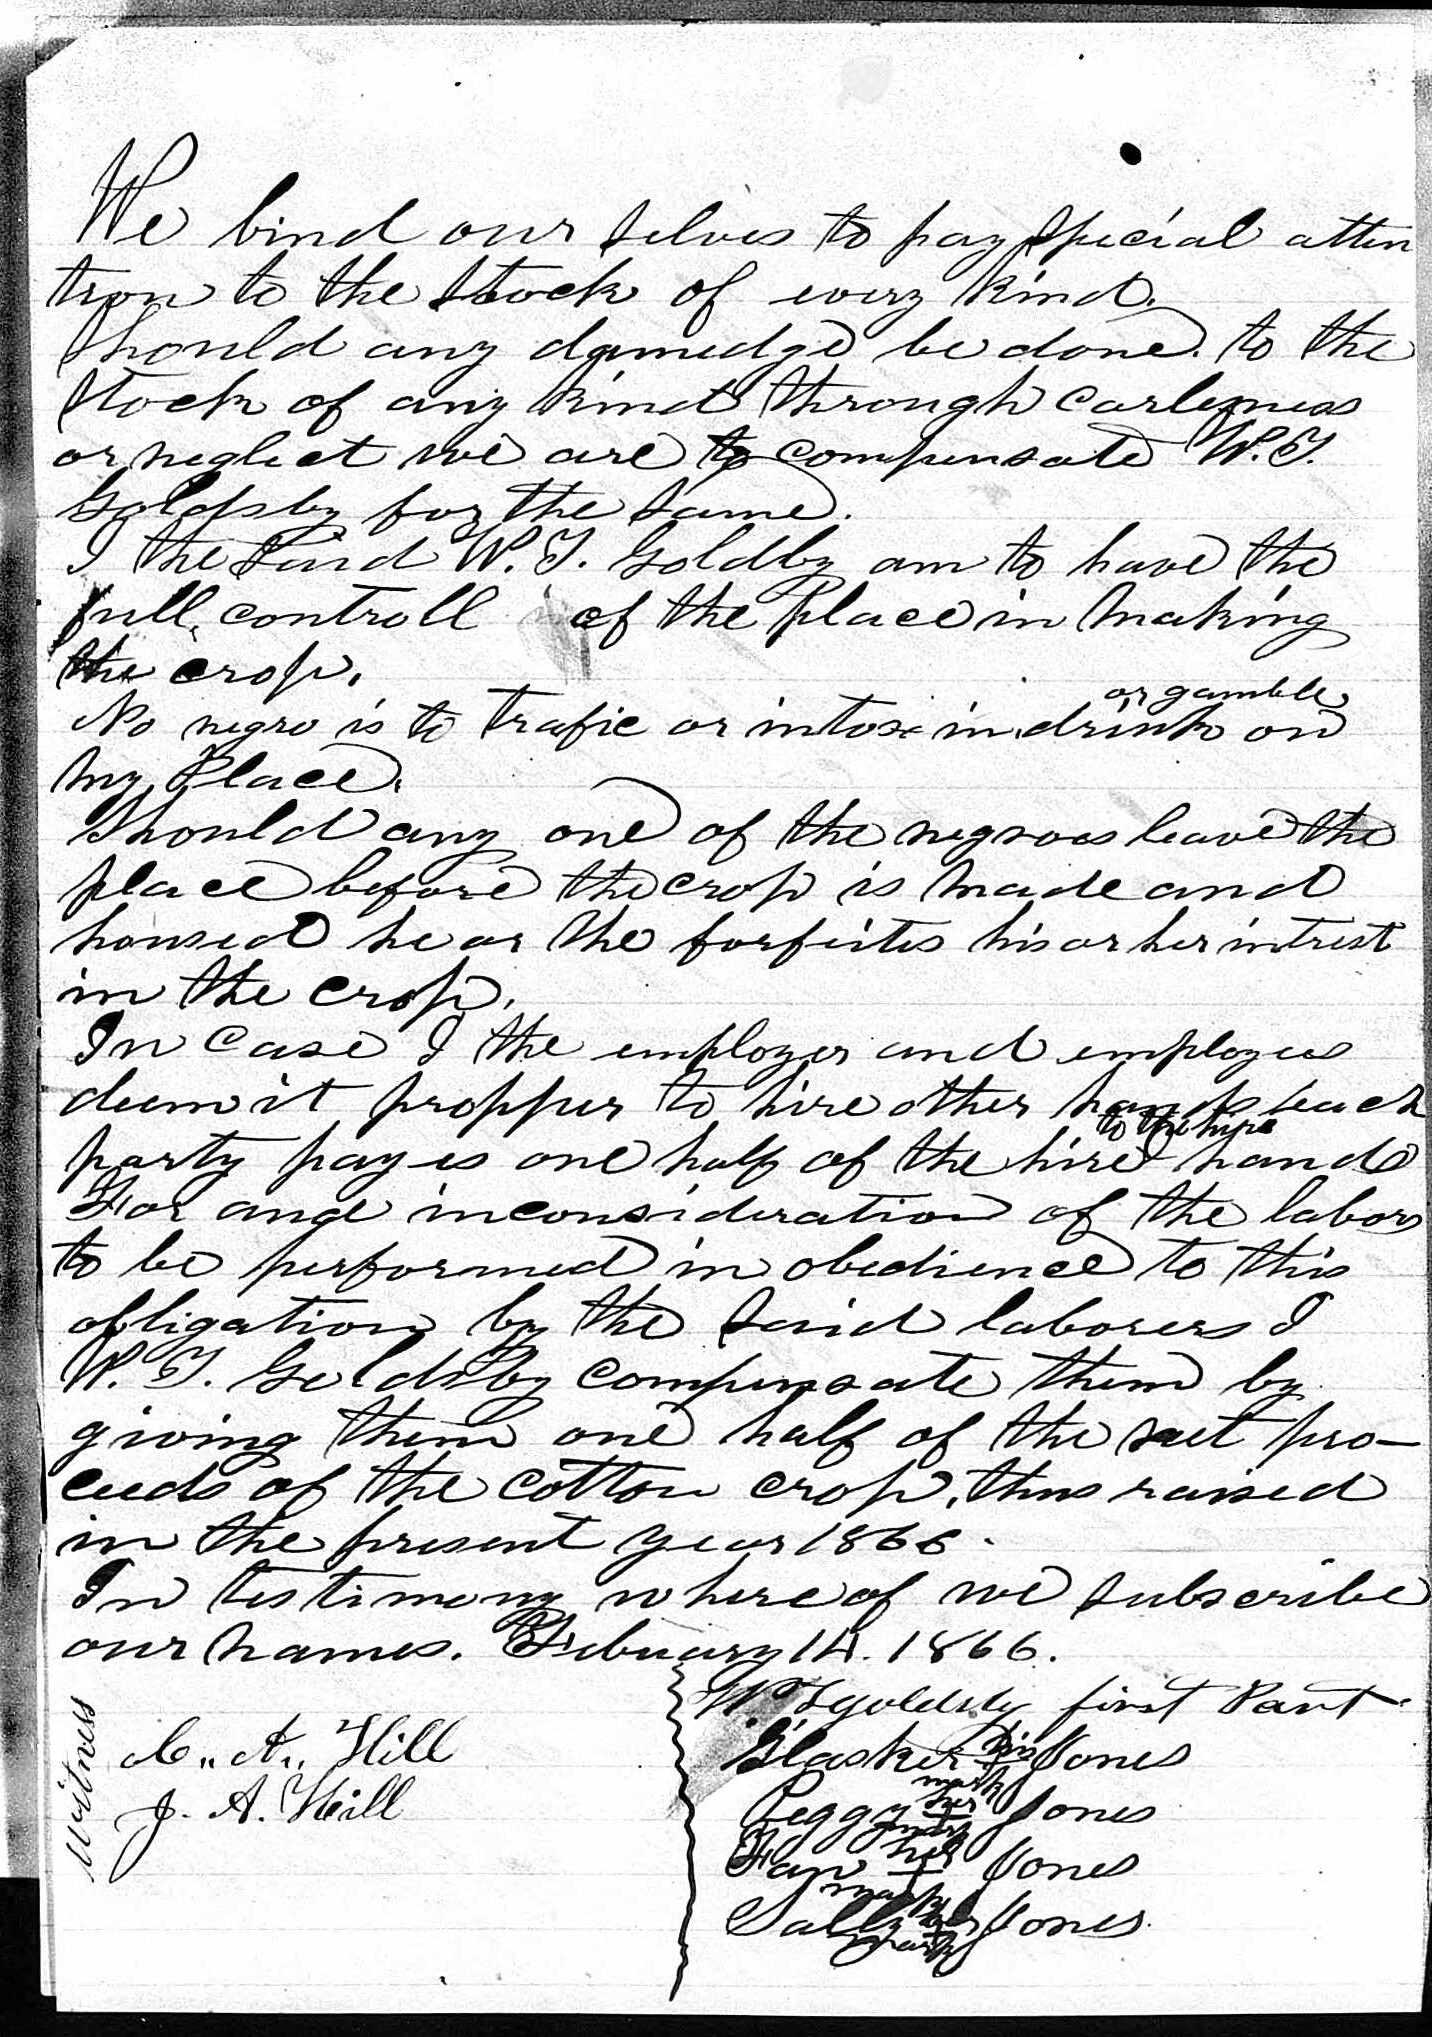 We bind our selves to pay special atten
tion to the stock of every kind.
Should any damedge be done to the
stock of any kind through carlessness
or neglect we are to compensate W. T.
Goldsby for the same.
I the said W. T. Goldby am to have the
full controll of the place in making
the crop.
No negro is to trafic or intox in drink or gamble on
my place.
Should any one of the negroes leave the
place before the crop is made and
housed he or she forfeites his or her intrest
in the crop.
In case I the employer and employees
deem it propper to hire other hands each
party payes one half of the hire to the hire hands
For and inconsideration of the labors
to be performed in obedience to this
obligation by the said laborers I
W. T. Goldsby compensate them by
giving them one half of the net pro-
ceeds of the cotton crop, thus raised
in the present year 1866.
In testimony where of we subscribe
our names. Febuary 14. 1866.
W. T goldsby first Part
Glasker his mark Jones
Peggy her mark Jones
Fan her mark Jones
Sally her mark Jones.
Witness
C. A. Hill
J. A. Hill